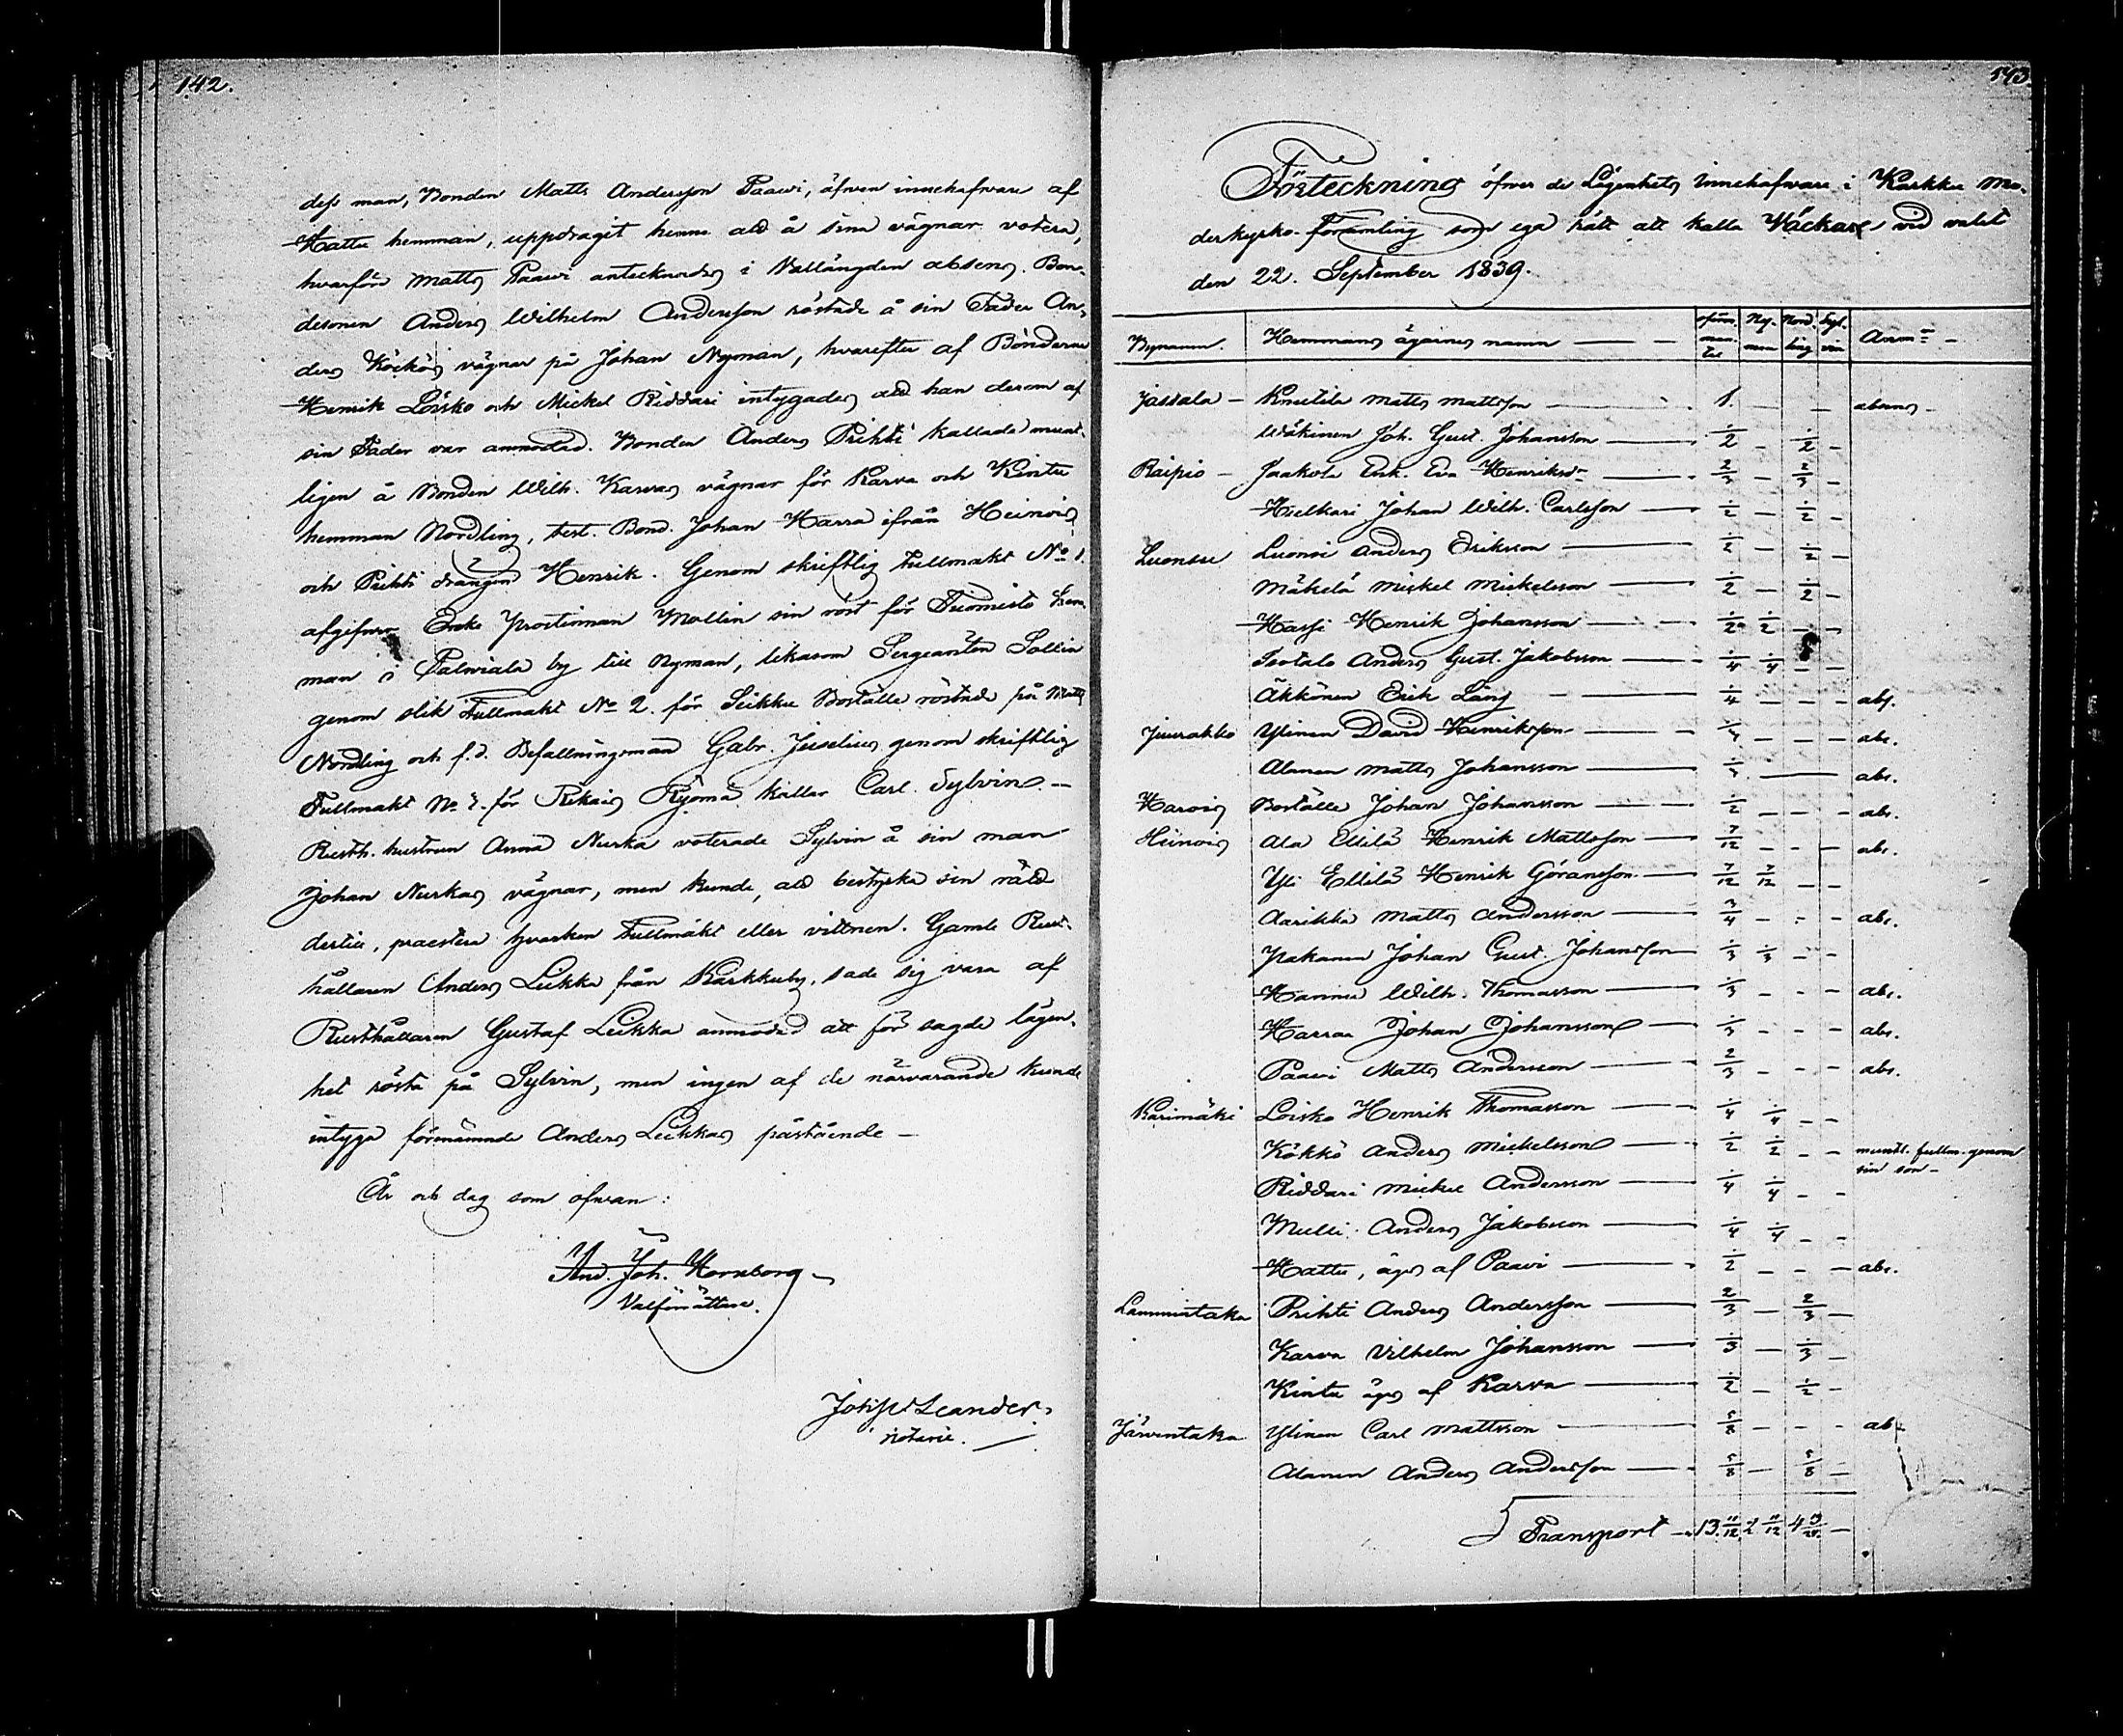 142.
dess man, Bonden Matts Andersson Paawi, äfwen innehafware af
Hattu hemman, uppdragit henne att å sina vägnar votera,
hwarföre Matts Paawi antecknades i Vallängden absens. Bon-
desonen Anders Wilhelm Andersson röstade å sin Fader An-
ders Köckös vägnar på Johan Nyman, hvarefter af Bönderne
Henrik Löisko och Mickel Riddari intygades att han derom af
sin Fader var anmodad. Bonden Anders Prihti kallade munt-
ligen å Bonden Wilh. Karvas vägnar för Karva och Kintu
hemman Nordling, test. Bond. Johan Harra ifrån Heinois
och Prihti drängen Henrik. Genom skriftlig fullmakt No 1.
afgifwer Enke Prostinnan Mollin sin röst för Tuomisto hem-
man i Palviala by till Nyman, likasom Sergeanten Sallin
genom slik Fullmakt No 2. för Siikku Boställe röstade på Matts
Nordling och f.d. Befallningsman Gabr. Juselius genom skriftlig
Fullmakt No 3. för Rikais Ryömä kallar Carl Sylvin. -
Rusth. hustrun Anna Nurka voterade Sylvin å sin man
Johan Nurkas vägnar, men kunde, att bestyrka sin rätt
dertill, praestera hwarken Fullmakt eller vittnen. Gamle Rust-
hållaren Anders Leikka från Karkkuby, sade sig vara af
Rusthållaren Gustaf Leikka anmodad att för sagde lägen-
het rösta på Sylvin, men ingen af de närvarande kunde
intyga förenämnde Anders Leikkas påstående -
År och dag som ofwan:
And. Joh. Hornborg
Valförrättare.
Leander.
notarie.
143.
Förteckning öfwer de Lägenhets Innehafware i Karkku Mo-
derkyrko-församling som ega rätt att kalla Wäckare vid valet
den 22. September 1839.
Bynamn. Hemmans ägarnes namn öfver mantal Nyman Nordling Sylvin Anm:
Jassala - Knuutila Matts Mattsson 1. - - absens -
Wäkinen Joh. Gust. Johansson 1/2 - 1/2 -
Raipio - Jaakola Enk. Eva Henriksdr 2/3 - 2/3 -
Huikari Johan Wilh. Carlsson 1/2 - 1/2 -
Luonsu Luonsi Anders Eriksson 1/2 - 1/2 -
Mäkelä Mickel Mickelsson 1/2 - 1/2 -
Hassi Henrik Johansson 1/2 1/2 - -
Isotalo Anders Gust. Jakobsson 1/4 1/4 - -
Äkkönen Erik Lång 1/4 - - - abs.
Juurakko Ylinen David Henriksson 1/3 - - - abs.
Alanen Matts Johansson 1/3 - abs.
Harois Boställe Johan Johansson 1/2 - - - abs.
Heinois Ala Ellilä Henrik Mattsson 7/12 - - - abs.
Yli Ellilä Henrik Göransson 7/12 7/12 - -
Aarikka Matts Andersson 3/4 - - - abs.
Pakanen Johan Gust. Johansson 1/3 1/3 - -
Hannu Wilh. Thomasson 1/3 - - - abs.
Harraa Johan Johansson 1/3 - - - abs.
Paawi Matts Andersson 2/3 - - - abs.
Karimäki Loisko Henrik Thomasson 1/4 1/4 - -
Kökkö Anders Mickelsson 1/2 1/2 - - muntl. fullm. genom
sin son -
Riddari Mickel Andersson 1/4 1/4 - -
Mulli Anders Jakobsson 1/4 1/4 - -
Hattu, äges af Paavi 1/2 - - - abs.
Lammintaka Prihti Anders Andersson 2/3 - 2/3 -
Karva Vilhelm Johansson 1/3 - 1/3 -
Kintu äges af Karva 1/2 - 1/2 -
Järventaka Ylinen Carl Mattsson 5/8 - - - abs
Alanen Anders Andersson 5/8 - 5/8 -
Transport 13 11/12 2 11/12 4 19/24 -